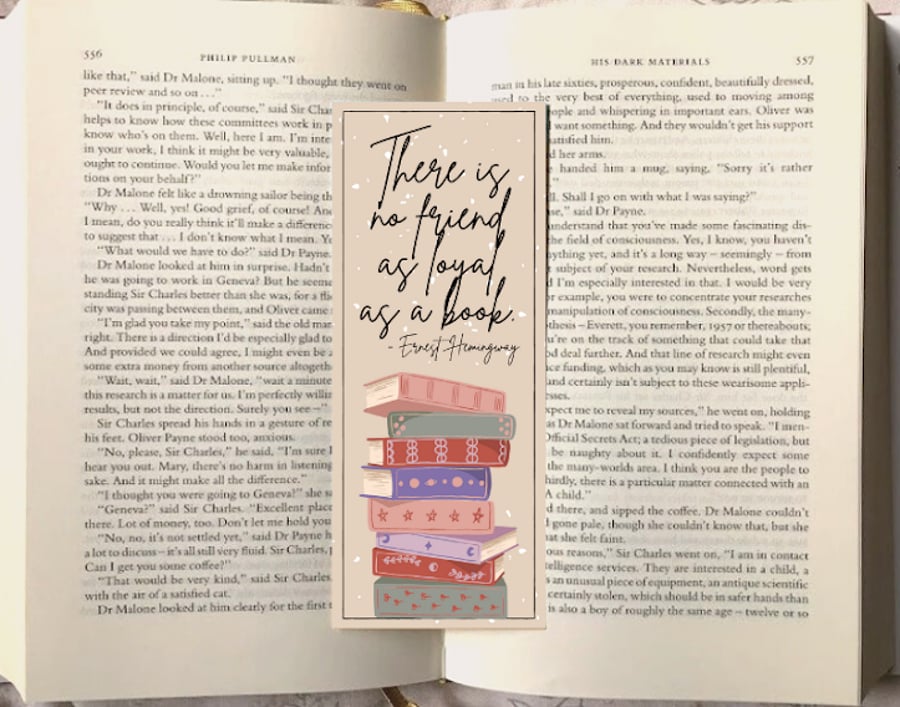 556
PHILIP PULLMAN
like that,” said Dr Malone, sitting up. “I thought they went on
peer review and so on . . .”
“It does in principle, of course,” said Sir Char
helps to know how these committees work in p
know who’s on them. Well, here I am. I’m inte
in your work, I think it might be very valuable,
ought to continue. Would you let me make infor
tions on your behalf?”
Dr Malone felt like a drowning sailor being th
“Why . . . Well, yes! Good grief, of course! And
I mean, do you really think it’ll make a difference
to suggest that . . . I don’t know what I mean. Ye
“What would we have to do?” said Dr Payne.
Dr Malone looked at him in surprise. Hadn’t
he was going to work in Geneva? But he seeme
standing Sir Charles better than she was, for a fli
city was passing between them, and Oliver came
“I’m glad you take my point,” said the old mar
right. There is a direction I’d be especially glad to
And provided we could agree, I might even be a
some extra money from another source altogeth
“Wait, wait,” said Dr Malone, “wait a minute
this research is a matter for us. I’m perfectly willin
results, but not the direction. Surely you see –”
Sir Charles spread his hands in a gesture of re
his feet. Oliver Payne stood too, anxious.
“No, please, Sir Charles,” he said. “I’m sure
hear you out. Mary, there’s no harm in listening
sake. And it might make all the difference.”
“I thought you were going to Geneva?” she sa
“Geneva?” said Sir Charles. “Excellent place
there. Lot of money, too. Don’t let me hold you
“No, no, it’s not settled yet,” said Dr Payne h
a lot to discuss – it’s all still very fluid. Sir Charles, p
Can I get you some coffee?”
“That would be very kind,” said Sir Charles
with the air of a satisfied cat.
Dr Malone looked at him clearly for the first t
There is
no friend
as loyal
as a book.
- Ernest Hemingway
HIS DARK MATERIALS
557
man in his late sixties, prosperous, confident, beautifully dressed,
used to the very best of everything, used to moving among
ople and whispering in important ears. Oliver was
want something. And they wouldn’t get his support
satisfied him.
d her arms.
handed him a mug, saying, “Sorry it’s rather
ll. Shall I go on with what I was saying?”
se,” said Dr Payne.
understand that you’ve made some fascinating dis-
the field of consciousness. Yes, I know, you haven’t
ything yet, and it’s a long way – seemingly – from
subject of your research. Nevertheless, word gets
d I’m especially interested in that. I would be very
or example, you were to concentrate your researches
manipulation of consciousness. Secondly, the many-
othesis – Everett, you remember, 1957 or thereabouts;
u’re on the track of something that could take that
od deal further. And that line of research might even
ce funding, which as you may know is still plentiful,
and certainly isn’t subject to these wearisome appli-
sses.
xpect me to reveal my sources,” he went on, holding
as Dr Malone sat forward and tried to speak. “I men-
Official Secrets Act; a tedious piece of legislation, but
be naughty about it. I confidently expect some
the many-worlds area. I think you are the people to
hirdly, there is a particular matter connected with an
A child.”
d there, and sipped the coffee. Dr Malone couldn’t
gone pale, though she couldn’t know that, but she
at she felt faint.
ous reasons,” Sir Charles went on, “I am in contact
telligence services. They are interested in a child, a
s an unusual piece of equipment, an antique scientific
certainly stolen, which should be in safer hands than
is also a boy of roughly the same age – twelve or so